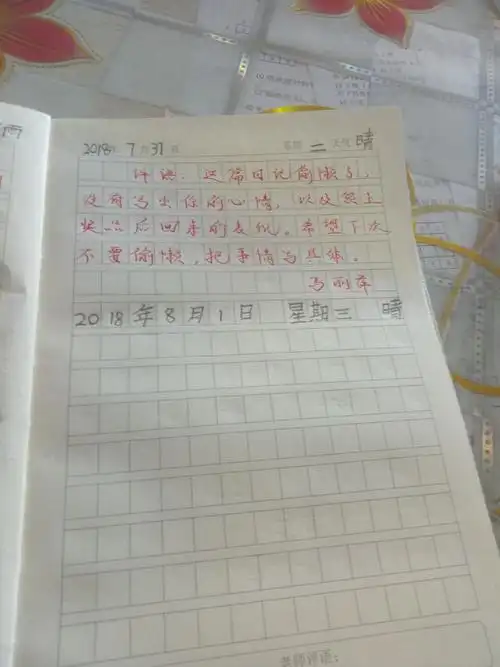 2018年 7月31日 星期 二 天气 晴
评语：这篇日记偷懒了，
没有写出你的心情，以及
后回来的表现。希望下次
不要偷懒，把事情写具体。
马丽萍
2018年8月1日 星期三 晴
老师评语：